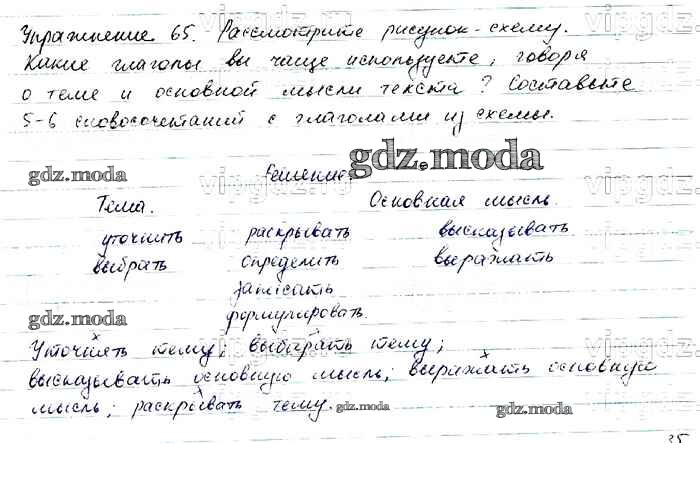 Упражнение 65. Рассмотрите рисунок-схему.
Какие глаголы вы чаще используете, говоря
о теме и основной мысли текста? Составьте
5-6 словосочетаний с глаголами из схемы.
gdz.moda
gdz.moda Решение
Тема. Основная мысль.
уточнить раскрывать высказывать
выбрать определить выражать
записать
gdz.moda формулировать.
Уточнять тему; выбирать тему;
высказывать основную мысль; выражать основную
мысль; раскрывать тему. gdz.moda gdz.moda
35